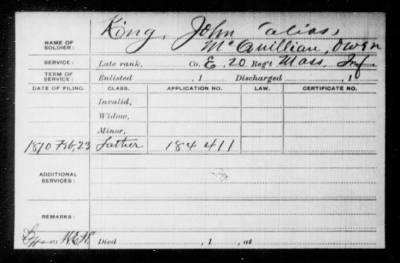 NAME OF SOLDIER: King, John (alias)
McQuillian, Owen
SERVICE: Late rank, Co. E, 20 Reg't Mass. Inf.
TERM OF SERVICE: Enlisted , 1 Discharged , 1
DATE OF FILING. CLASS. APPLICATION NO. LAW. CERTIFICATE NO.
Invalid,
Widow,
Minor,
1870 Feb, 23 father 184 411
ADDITIONAL SERVICES:
REMARKS:
Died , 1 , at